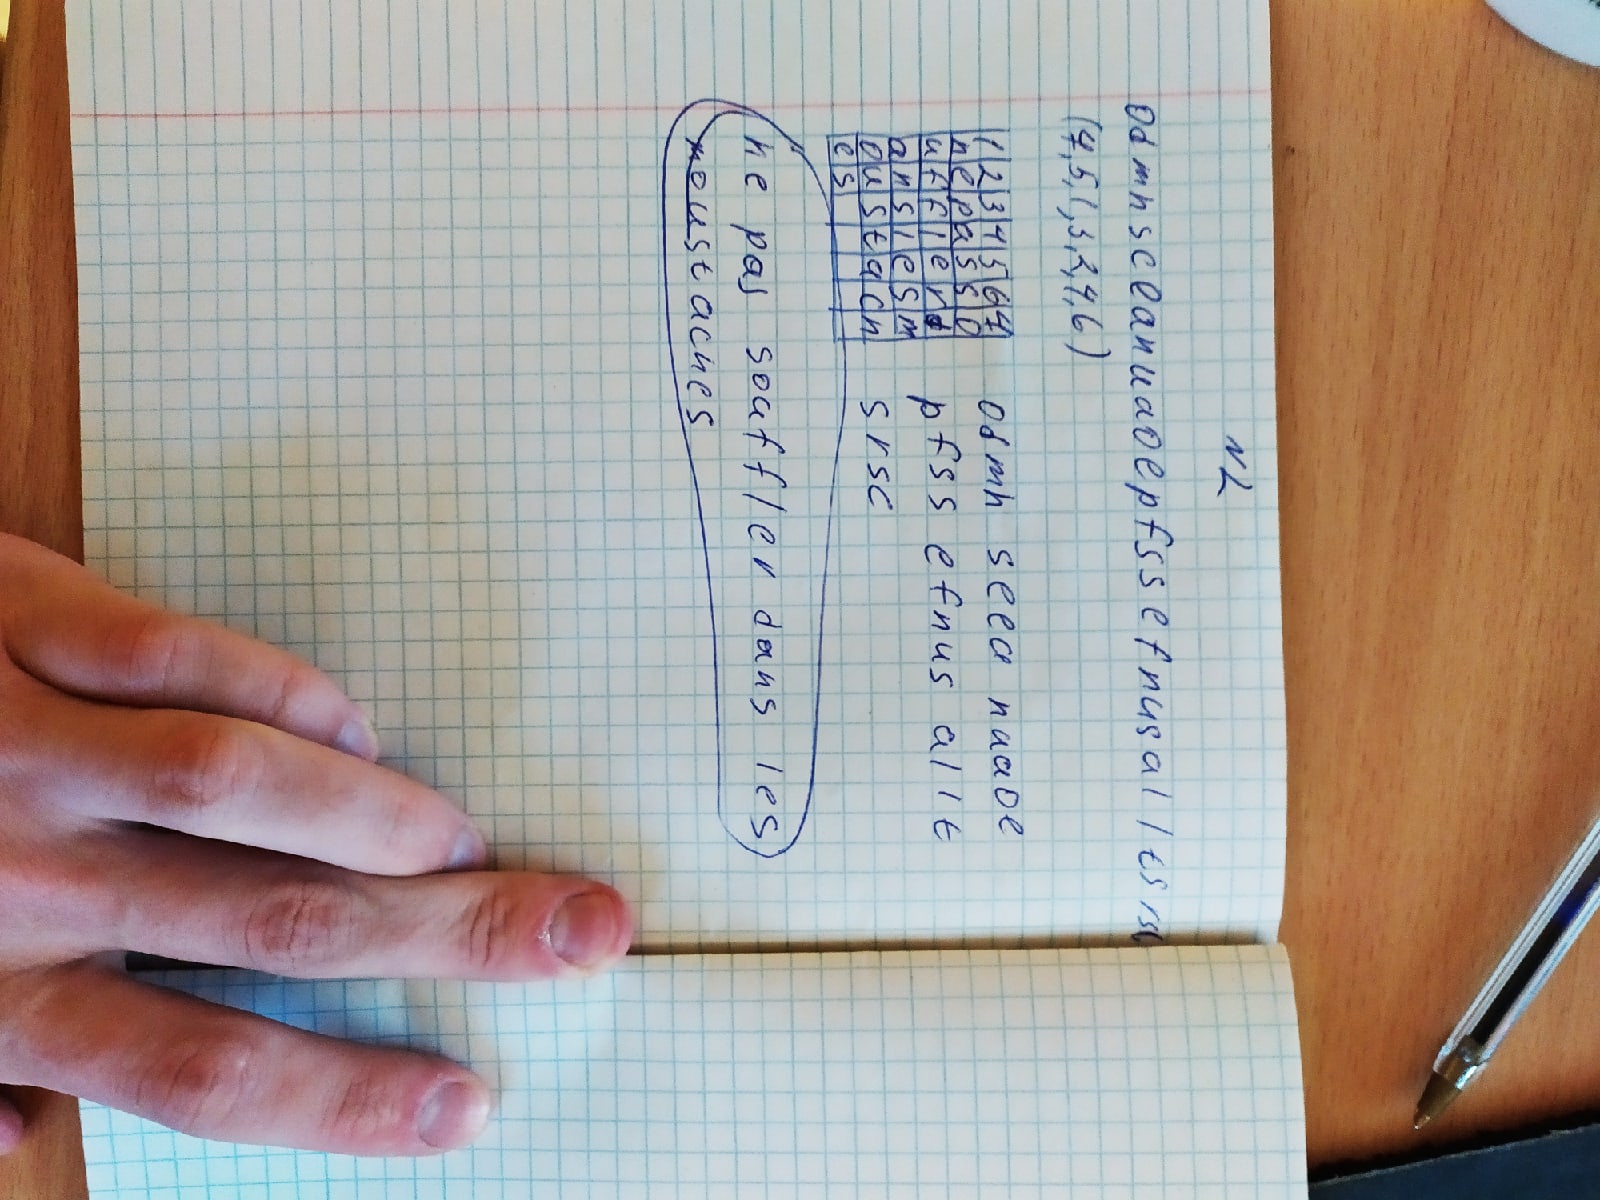 N2
odmhsceanuaoepfssefnusalltsrsc
(7,5,1,3,2,4,6)
1 2 3 4 5 6 7
n e p a s s o
u f f l e r d
a n s l e s m
o u s t a c h
e s
odmh seea nuaoe
pfss efnus allt
srsc
ne pas souffler dans les
moustaches